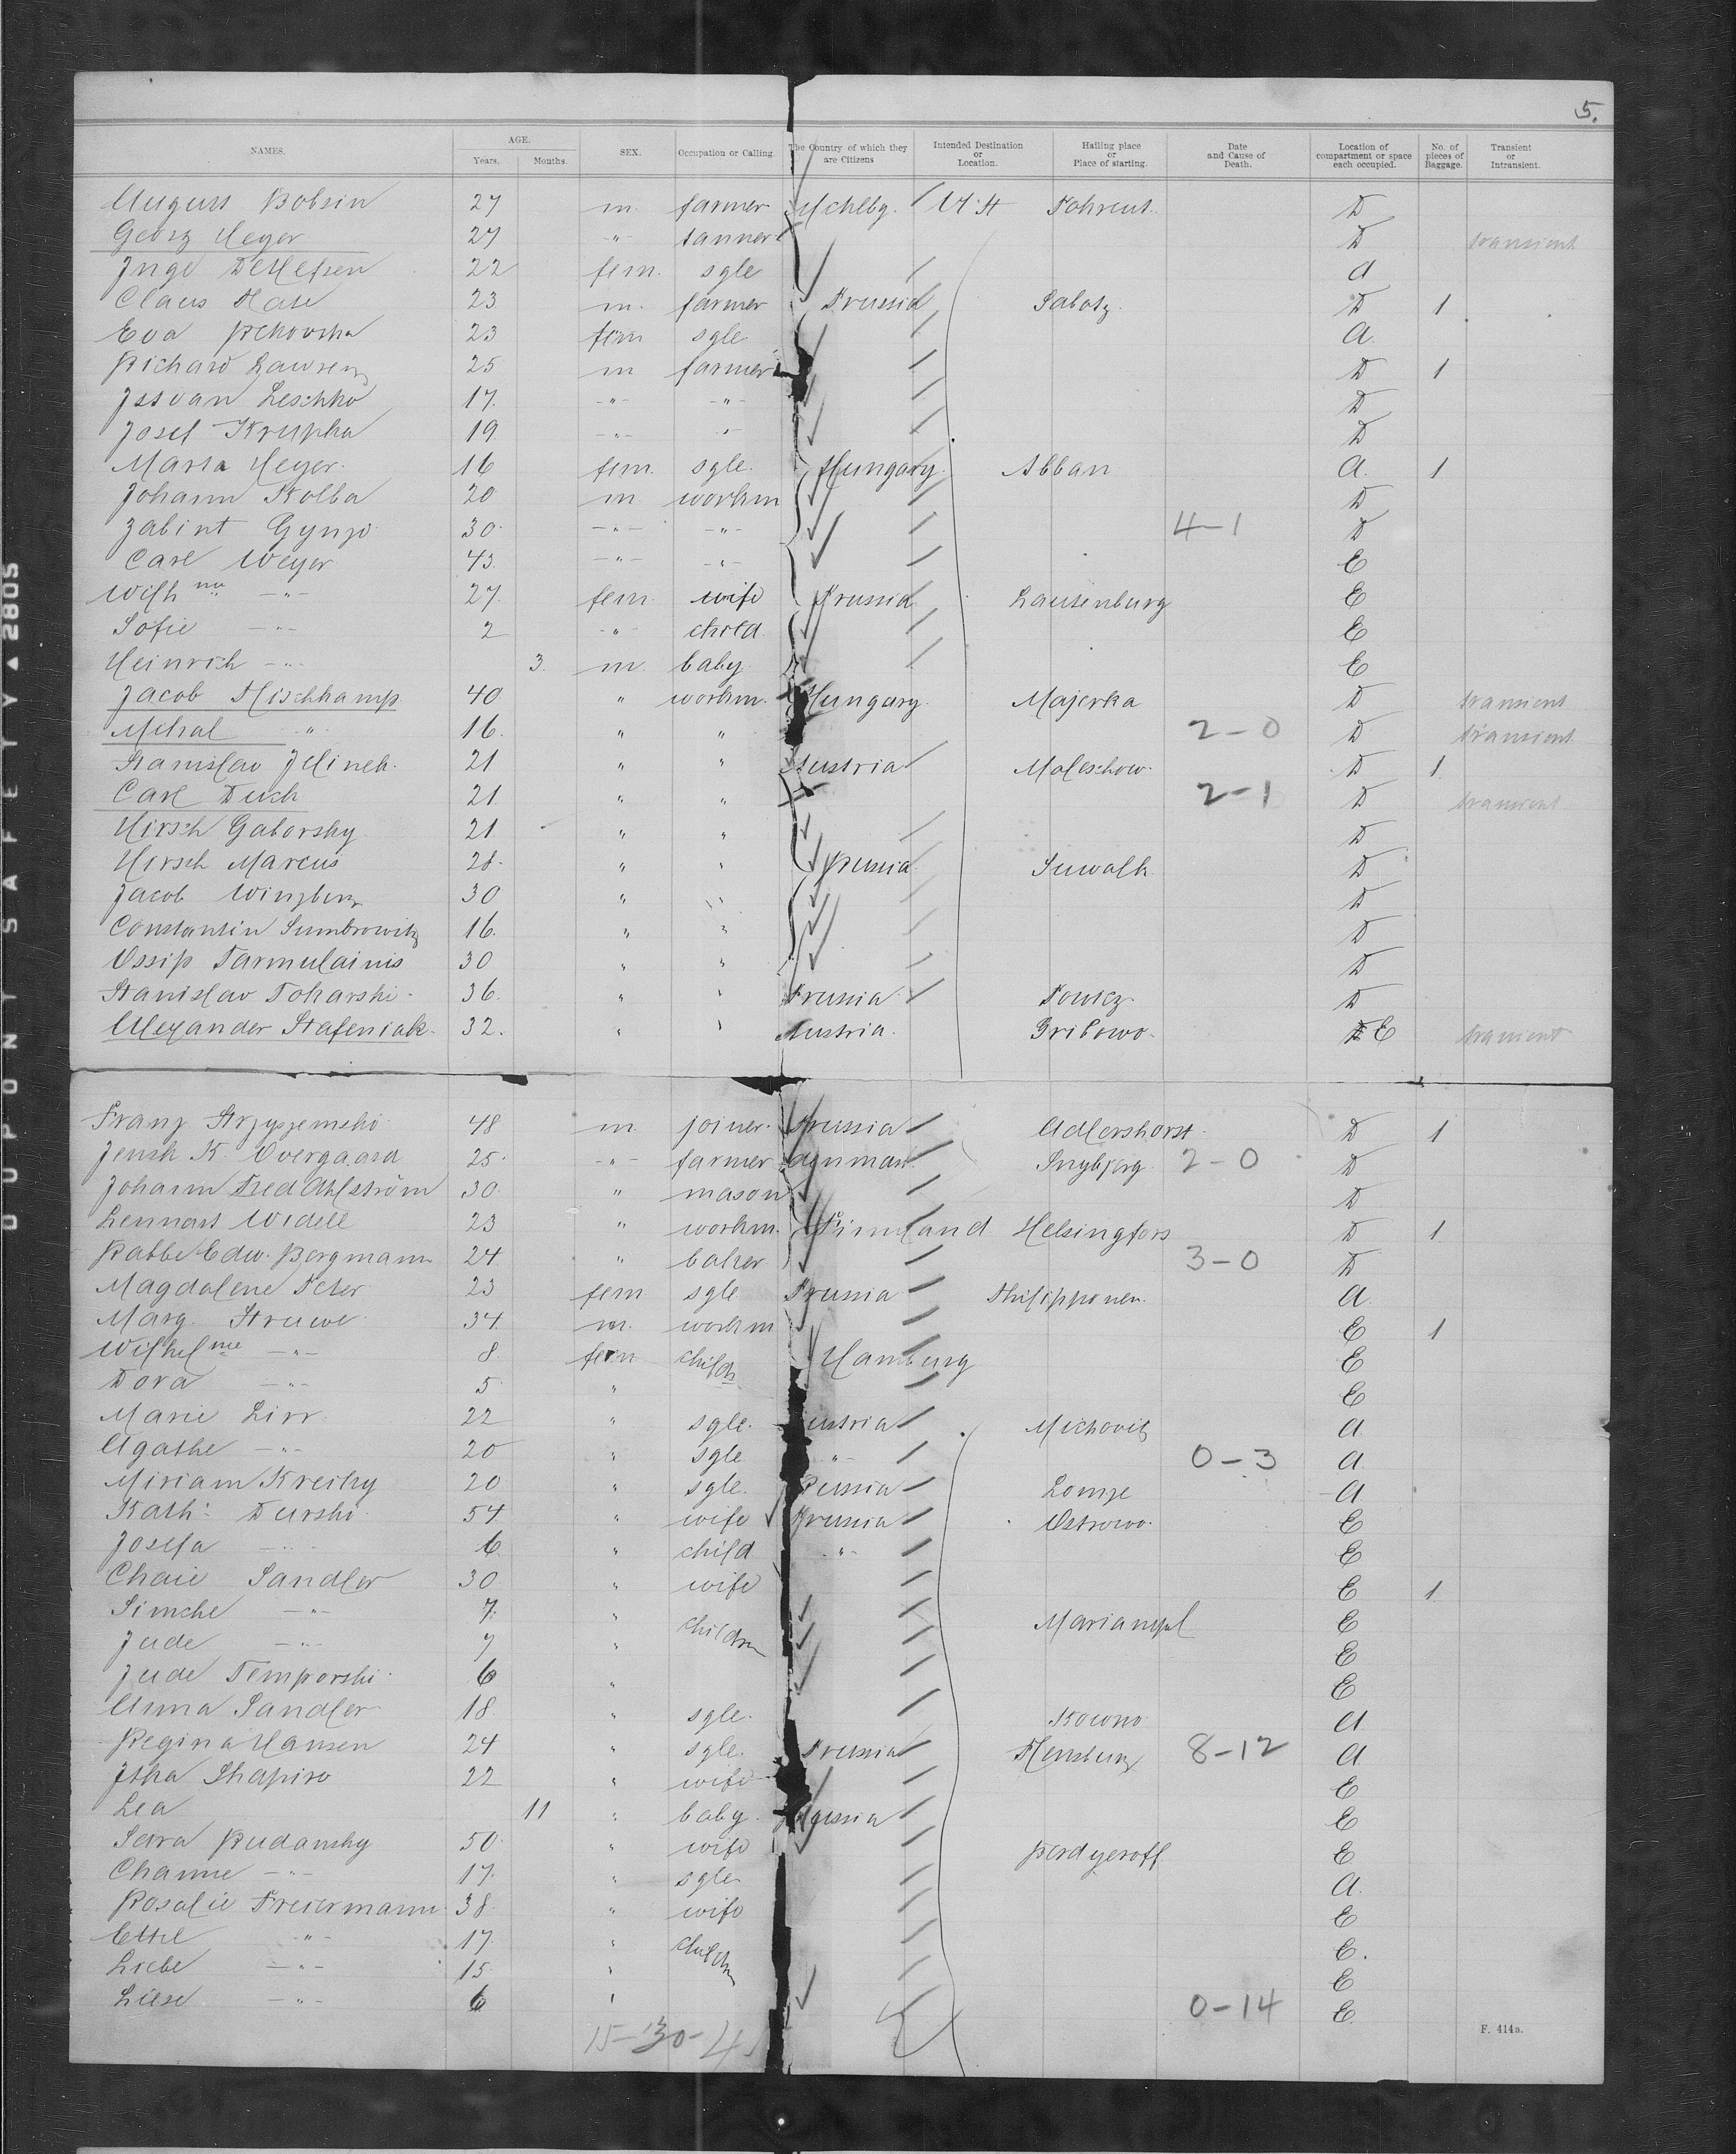 5.
NAMES. AGE. Years. Months. SEX. Occupation or Calling. The Country of which they are Citizens Intended Destination or Location. Hailing place or Place of starting. Date and Cause of Death. Location of compartment or space each occupied. No. of pieces of Baggage. Transient or Intransient.
August Bobsin 27 m. farmer Mcklbg. U.St D
Georg Heger 27 -"- tanner D transient
Inge Detlefsen 22 fem. sgle a
Claus Hase 23 m. farmer Prussia D 1
Eva 23 fem sgle a.
Richard Lawrenz 25 m farmer D 1
Istvan Leschko 17. -"- -"- D
Josef Krupka 19. -"- -"- D
Maria Heger. 16 fem. sgle. Hungary. Abban a. 1
Johann Kolba 20 m workm D
30. -"- -"- 4-1 D
Carl Weyer 43. -"- -"- E
Wilh ne -"- 27. fem. wife Prussia Lautenburg E
Sofie -"- 2 -"- child E
Heinrich -"- 3. m. baby. E
Jacob Hischkamp 40 " workm. Hungary. Majerka D transient
Michal " 16. " " 2-0 D transient
Stanislav Jelinek. 21 " " Austria Maleschow. D 1
Carl Duch 21 " " 2-1 D transient
Hirsch Gaborsky 21 " " D
Hirsch Marcus 28. " " Russia Suwalk D
Jacob Winzberg 30 " " D
Constantin Sumbrowitz 16. " " D
Ossip Tarmulainis 30 " " D
Stanislav Tokarski. 36. " " Prussia Powicz. D
Alexander Stafeniak. 32. " " Austria. Gribowo. E transient
Franz Strzyszemski 48 m. joiner. Prussia Adlershorst. D 1
Jensk K. Overgaard 25. -"- farmer 2-0 D
Johann Fred Ahlström 30. " mason D
Lennart Widell 23 " workm. Finnland Helsingfors D 1
Rabbe Edw. Bergmann 24 " baker 3-0 D
Magdalene Peter 23 fem sgle Prussia Philipponen. a.
Marg. Struwe 34. m. workm E 1
Wilhel me -"- 8. fem childn Hamburg E
Dora -"- 5 " E
Marie Lirr 22 " sgle. Austria Michovitz a
Agathe -"- 20 " sgle -"- 0-3 a.
Miriam Kreiky 20 " sgle. Russia Lomze a
Kath: Durski 54 " wife Prussia Ostrowo. E
Josefa -"- 6 " child -"- E
Chaie Sandler 30 " wife E 1
Simche -"- 7. " children Mariampol E
Jude -"- 7 " E
Jude Temporski. 6 " E
Anna Sandler 18. " sgle. Kowno a
Regina Hansen 24 " sgle. Prussia Flensburg 8-12 a
Itka Shapiro 22 " wife E
Lea 11 " baby. Russia E
Sara Rudansky 50. " wife E
Channe -"- 17. " sgle a.
Rosalie Freiermann 38. " wife E
Ettel -"- 17. " children E.
Liebe -"- 15. " E
Liese -"- 6 " 0-14 E.
15-30-4
F. 414a.
DUPONT SAFETY ▲ 2805